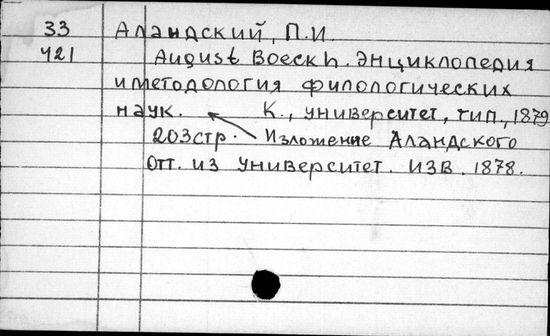 33 Аландский, П.И.
421 August Boeckh. Энциклопедия
и методология филологических
наук. К., университет, тип., 1879
203стр. Изложение Аландского
Отт. из Университет. Изв. 1878.